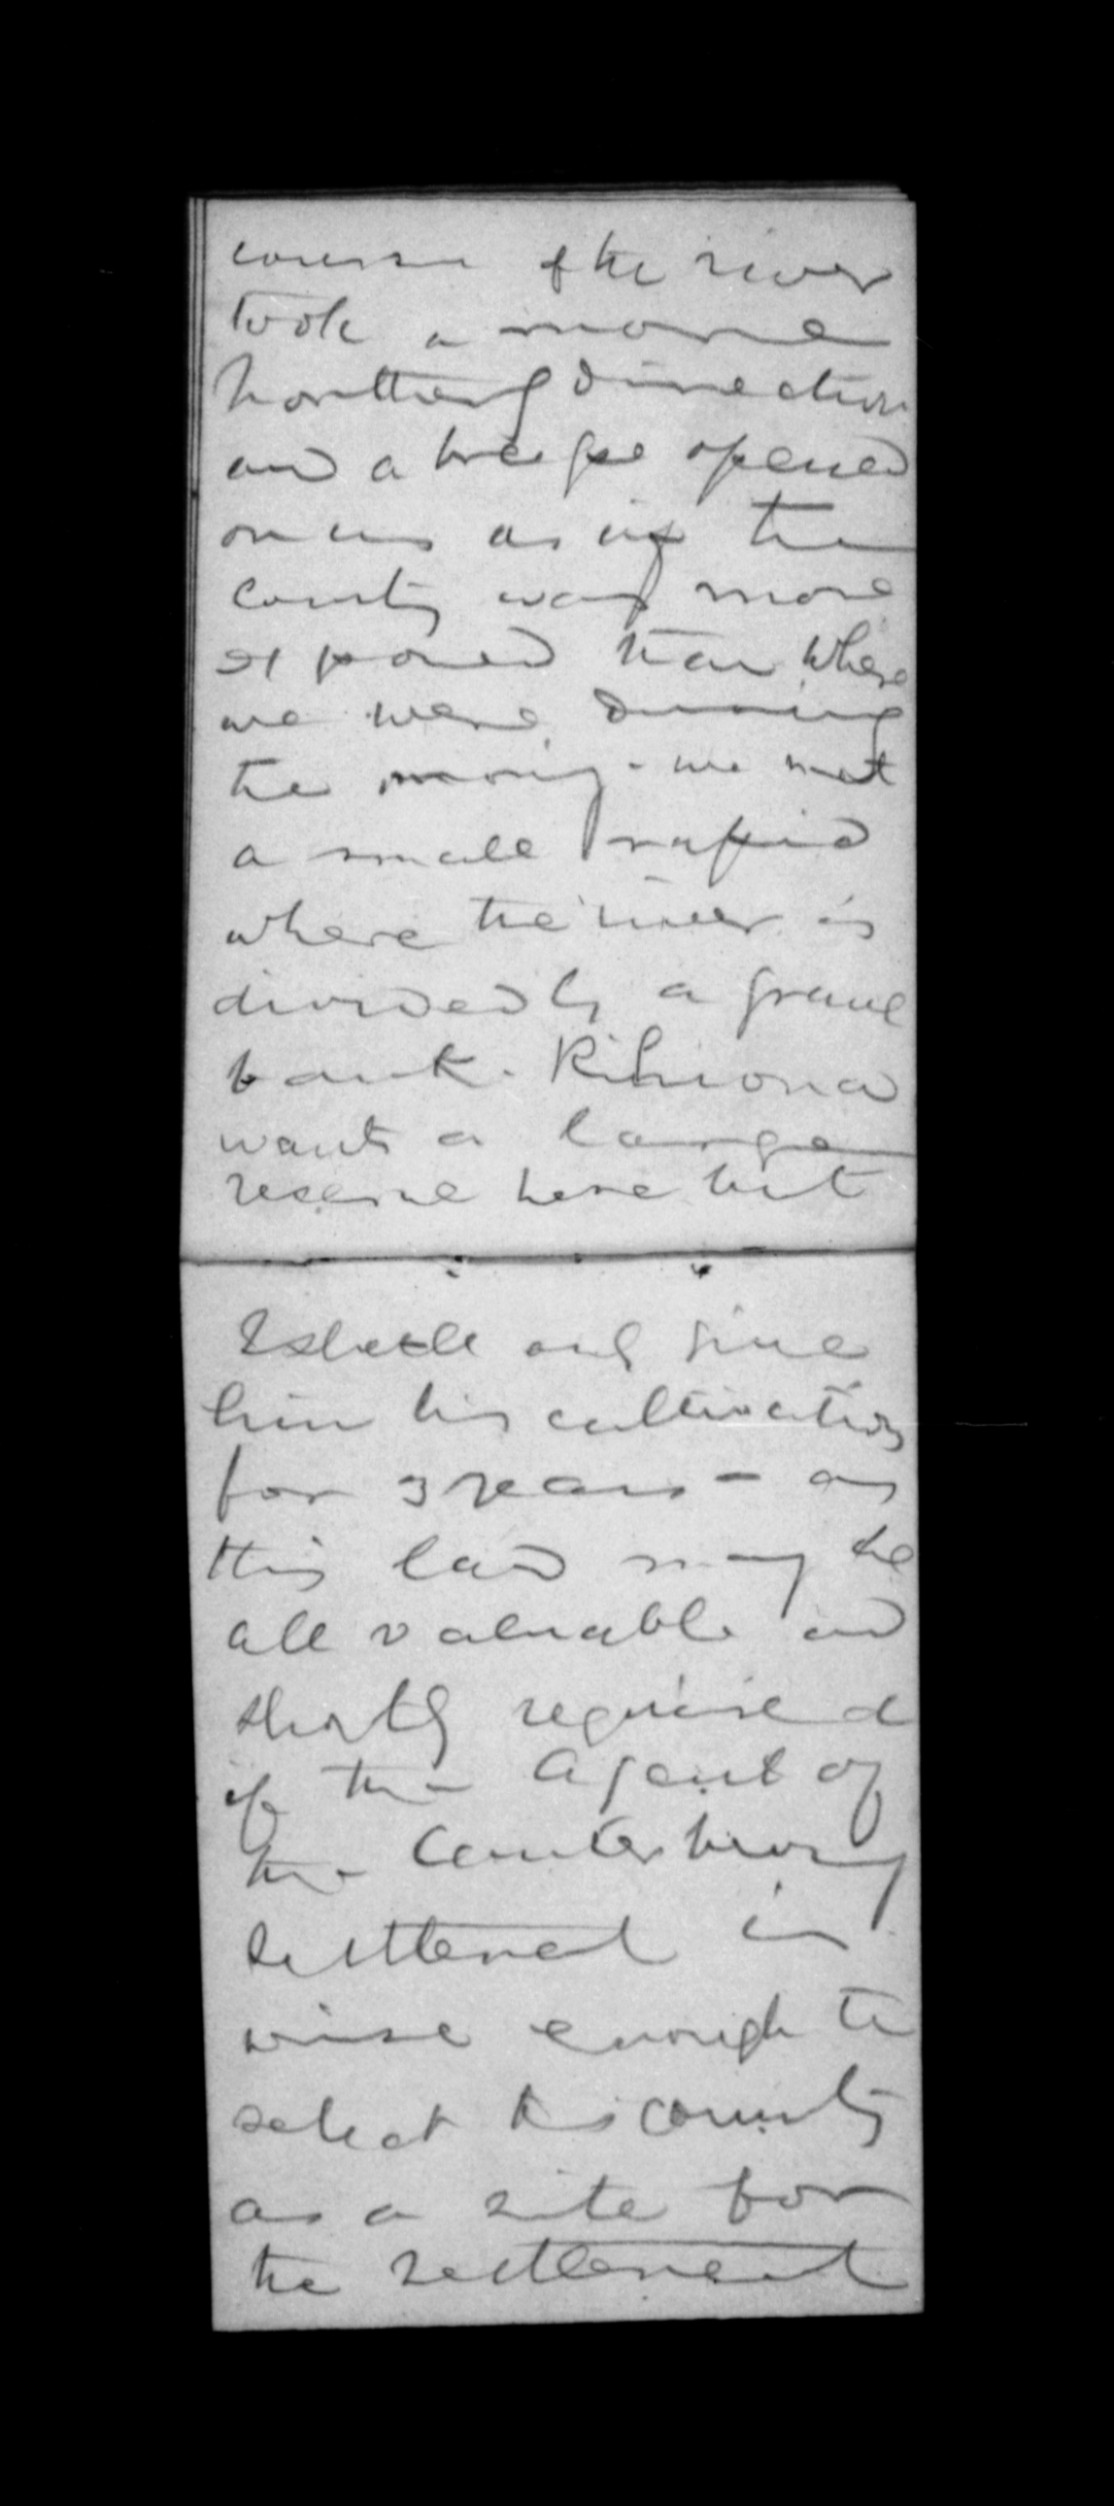 course of the river
took a more
northerly direction
and a breeze opened
on us as if the
country was more
exposed than where
we were during
the morning - we met
a small rapid
where the river is
divided by a gravel
bank.
wants a large
reserve here but
I shall only give
him his cultivation
for 3 years - as
this land may be
all valuable and
shortly required
if the Agent of
the Canterbury
settlement is
wise enough to
select this country
as a site for
the settlement